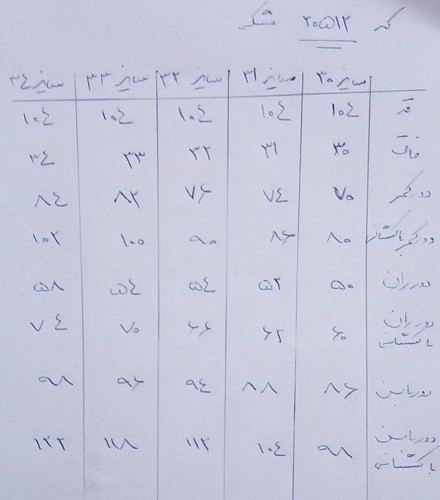 کد ۲۰۵۱۲ مشکی
سایز ۳۰ سایز ۳۱ سایز ۳۲ سایز ۳۳ سایز ۳۴
قد ۱۰۴ ۱۰۴ ۱۰۴ ۱۰۴ ۱۰۴
فاق ۳۰ ۳۱ ۳۲ ۳۳ ۳۴
دور کمر ۷۰ ۷۴ ۷۶ ۸۲ ۸۴
دور کمر با کشسانی ۸۰ ۸۶ ۹۰ ۱۰۰ ۱۰۲
دور ران ۵۰ ۵۲ ۵۴ ۵۴ ۵۸
دور ران با کشسانی ۶۰ ۶۲ ۶۶ ۷۰ ۷۴
دور باسن ۸۶ ۸۸ ۹۴ ۹۶ ۹۸
دور باسن با کشسانی ۹۸ ۱۰۴ ۱۱۲ ۱۱۸ ۱۲۲